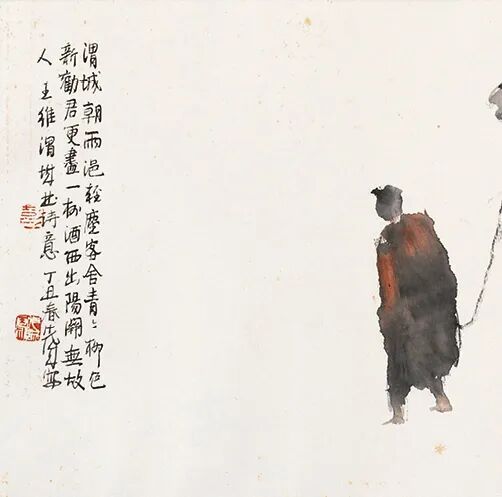 渭城朝雨浥輕塵客舍青〻柳色
新勸君更盡一杯酒西出陽關無故
人王維渭城曲詩意丁丑春寫